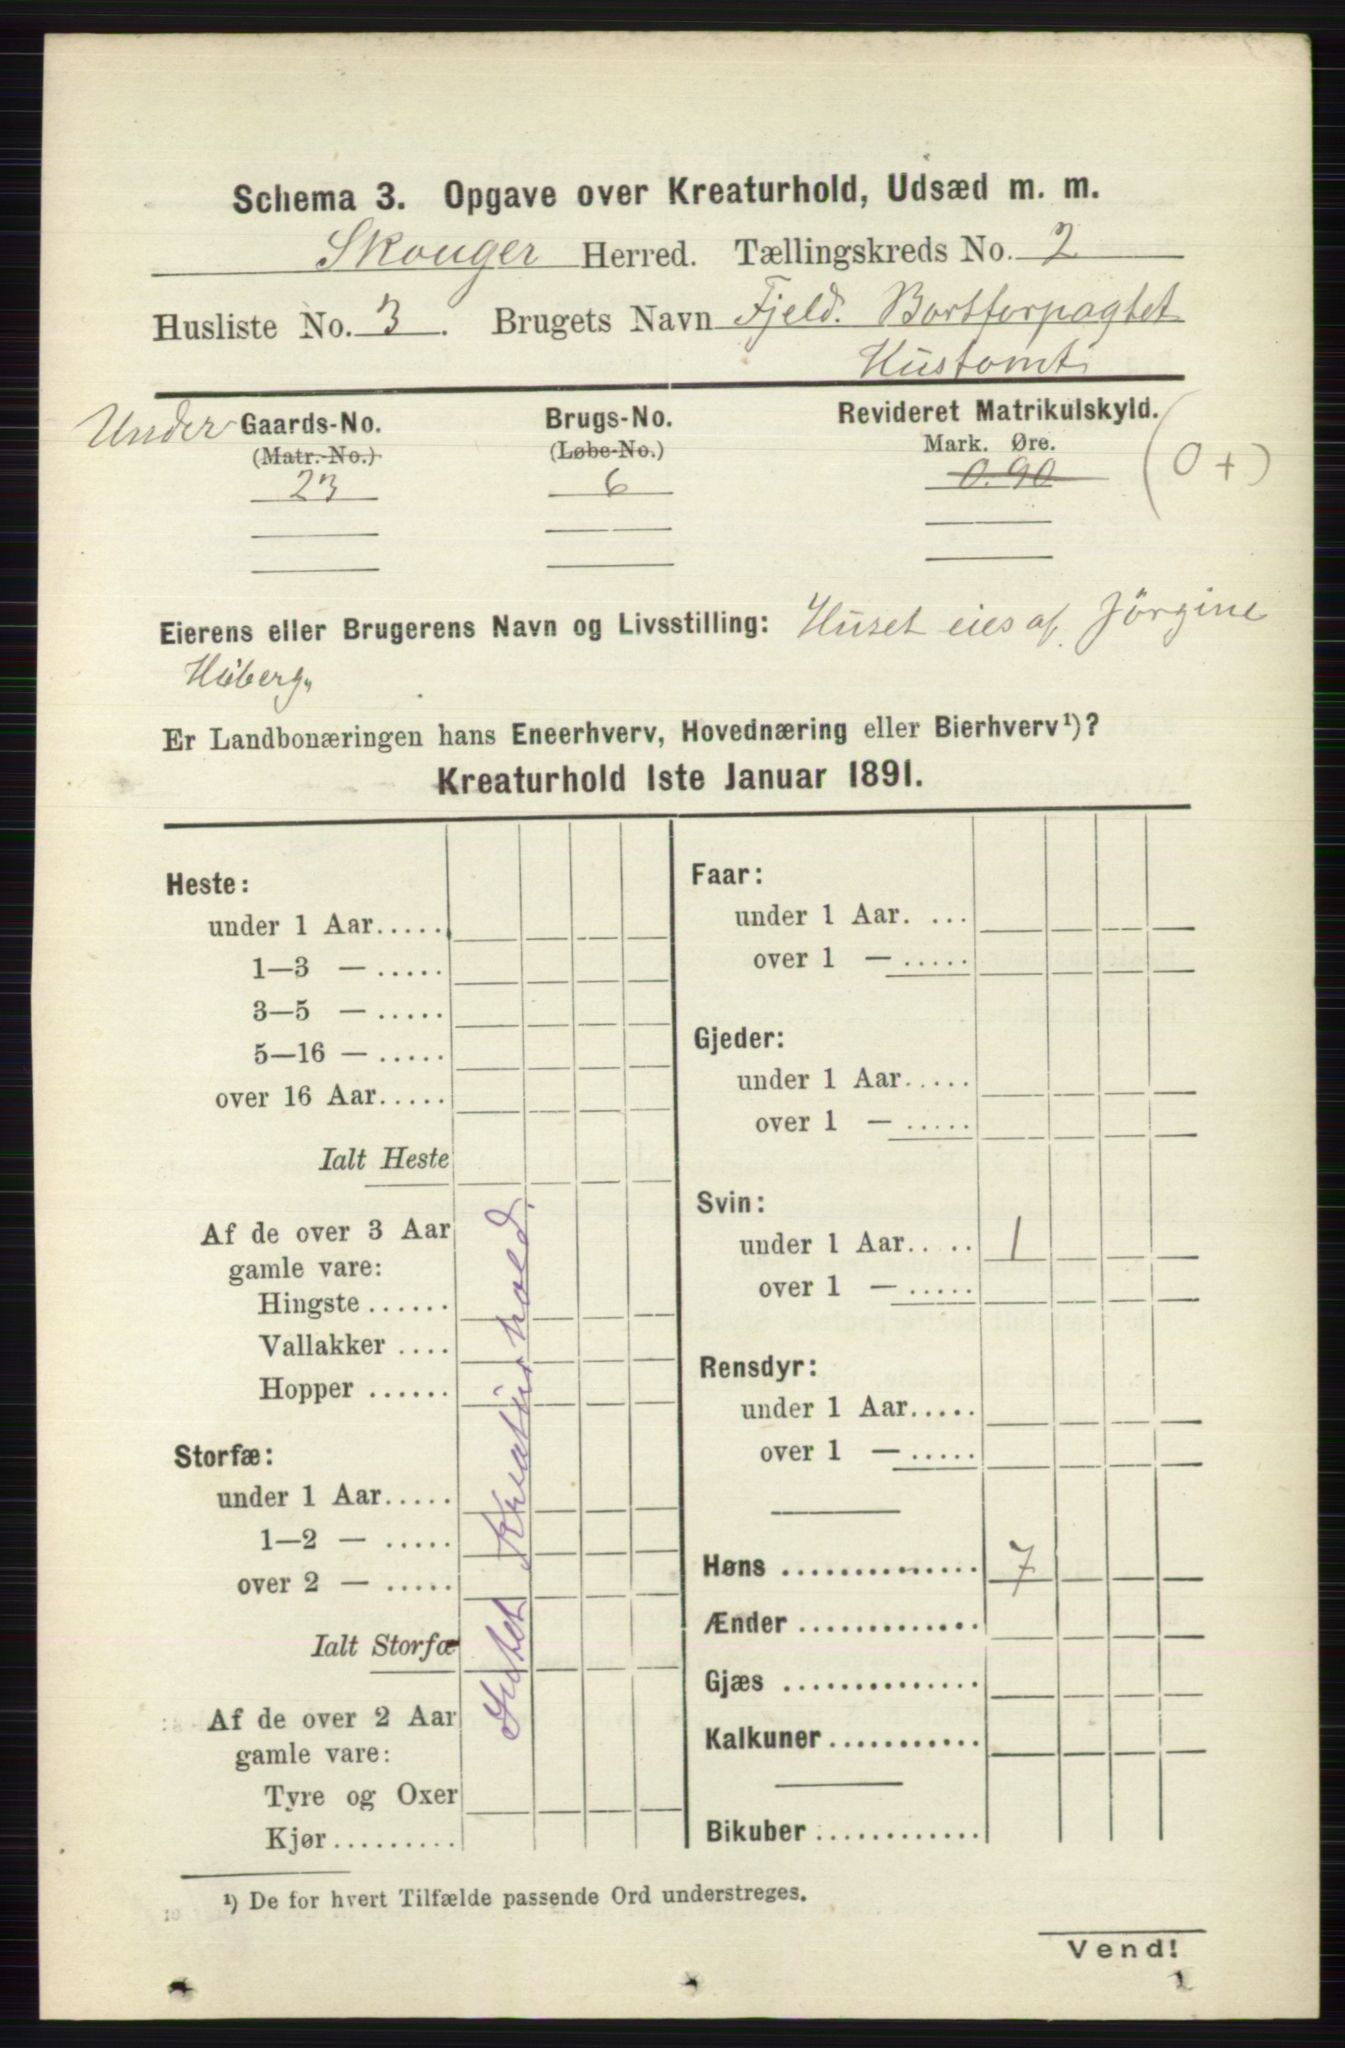 Schema 3. Opgave over Kreaturhold, Udsæd m. m.
Skouger Herred. Tællingskreds No. 2
Husliste No. 3. Brugets Navn Fjeld. Bortforpagtet
Hustomt
Under Gaards-No. Brugs-No. Revideret Matrikulskyld.
(Matr.-No.) (Løbe-No.) Mark. Øre.
23 6 0.90 (0+)
Eierens eller Brugerens Navn og Livsstilling: Huset eies af Jörgine
Höberg
Er Landbonæringen hans Eneerhverv, Hovednæring eller Bierhverv¹)?
Kreaturhold 1ste Januar 1891.
Heste:
under 1 Aar.....
1—3 — .....
3—5 — .....
5—16 — .....
over 16 Aar.....
Ialt Heste
Af de over 3 Aar
gamle vare:
Hingste ......
Vallakker ....
Hopper ......
Storfæ:
under 1 Aar.....
1—2 — .....
over 2 — .....
Ialt Storfæ
Af de over 2 Aar
gamle vare:
Tyre og Oxer
Kjør.........
Intet Kreaturhold.
Faar:
under 1 Aar. ...
over 1 — .....
Gjeder:
under 1 Aar.....
over 1 — .....
Svin:
under 1 Aar..... 1
over 1 — .....
Rensdyr:
under 1 Aar.....
over 1 — .....
Høns .............. 7
Ænder .............
Gjæs ..............
Kalkuner...........
Bikuber ............
¹) De for hvert Tilfælde passende Ord understreges.
Vend!